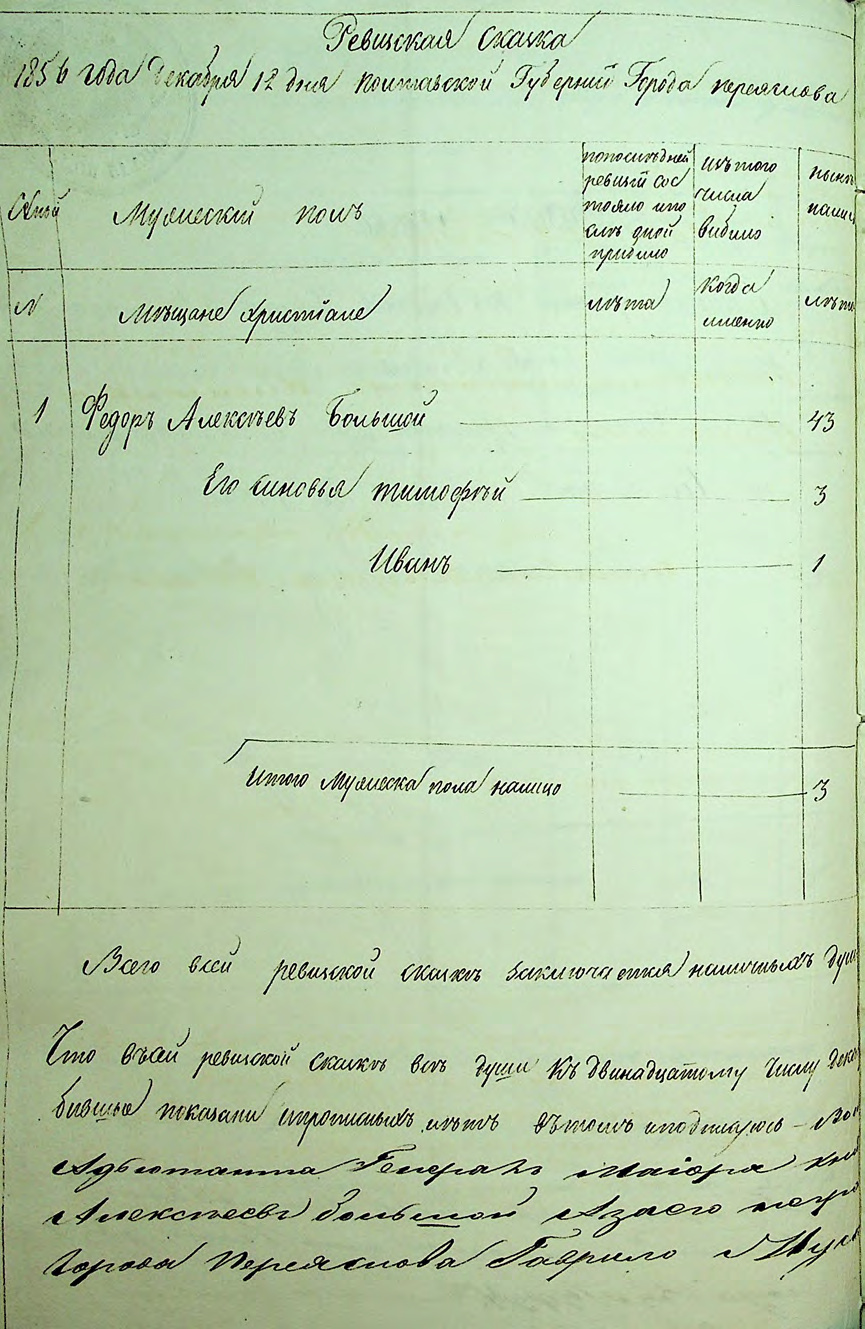 Ревизская Сказка
1856 года Декабря 12 дня Полтавской Губернии Города переяслова
Мужеский полъ
попоследней
ревизий сос
тояло ипо
слѣ оной
прибило
изътого
числа
вибило
нынѣ
налиц
№
Мѣщане Христiане
лѣта
когда
именно
лѣта
1 Федоръ Алексѣевъ Большой 43
Его синовья тимофѣй 3
Иванъ 1
Итого Мужеска пола налицо 3
Всего всей ревизской сказкѣ заключается наличныхъ душ
Что въсей ревизской сказкѣ всѣ души Къ двинадцатому Числу дека
бившые показани ипрописныхъ нѣтъ вътомъ иподпишуюсь
Адъютанта Генералъ Маiора
Алексѣевъ большой Азаего негр
Города Переяслова Гаврило